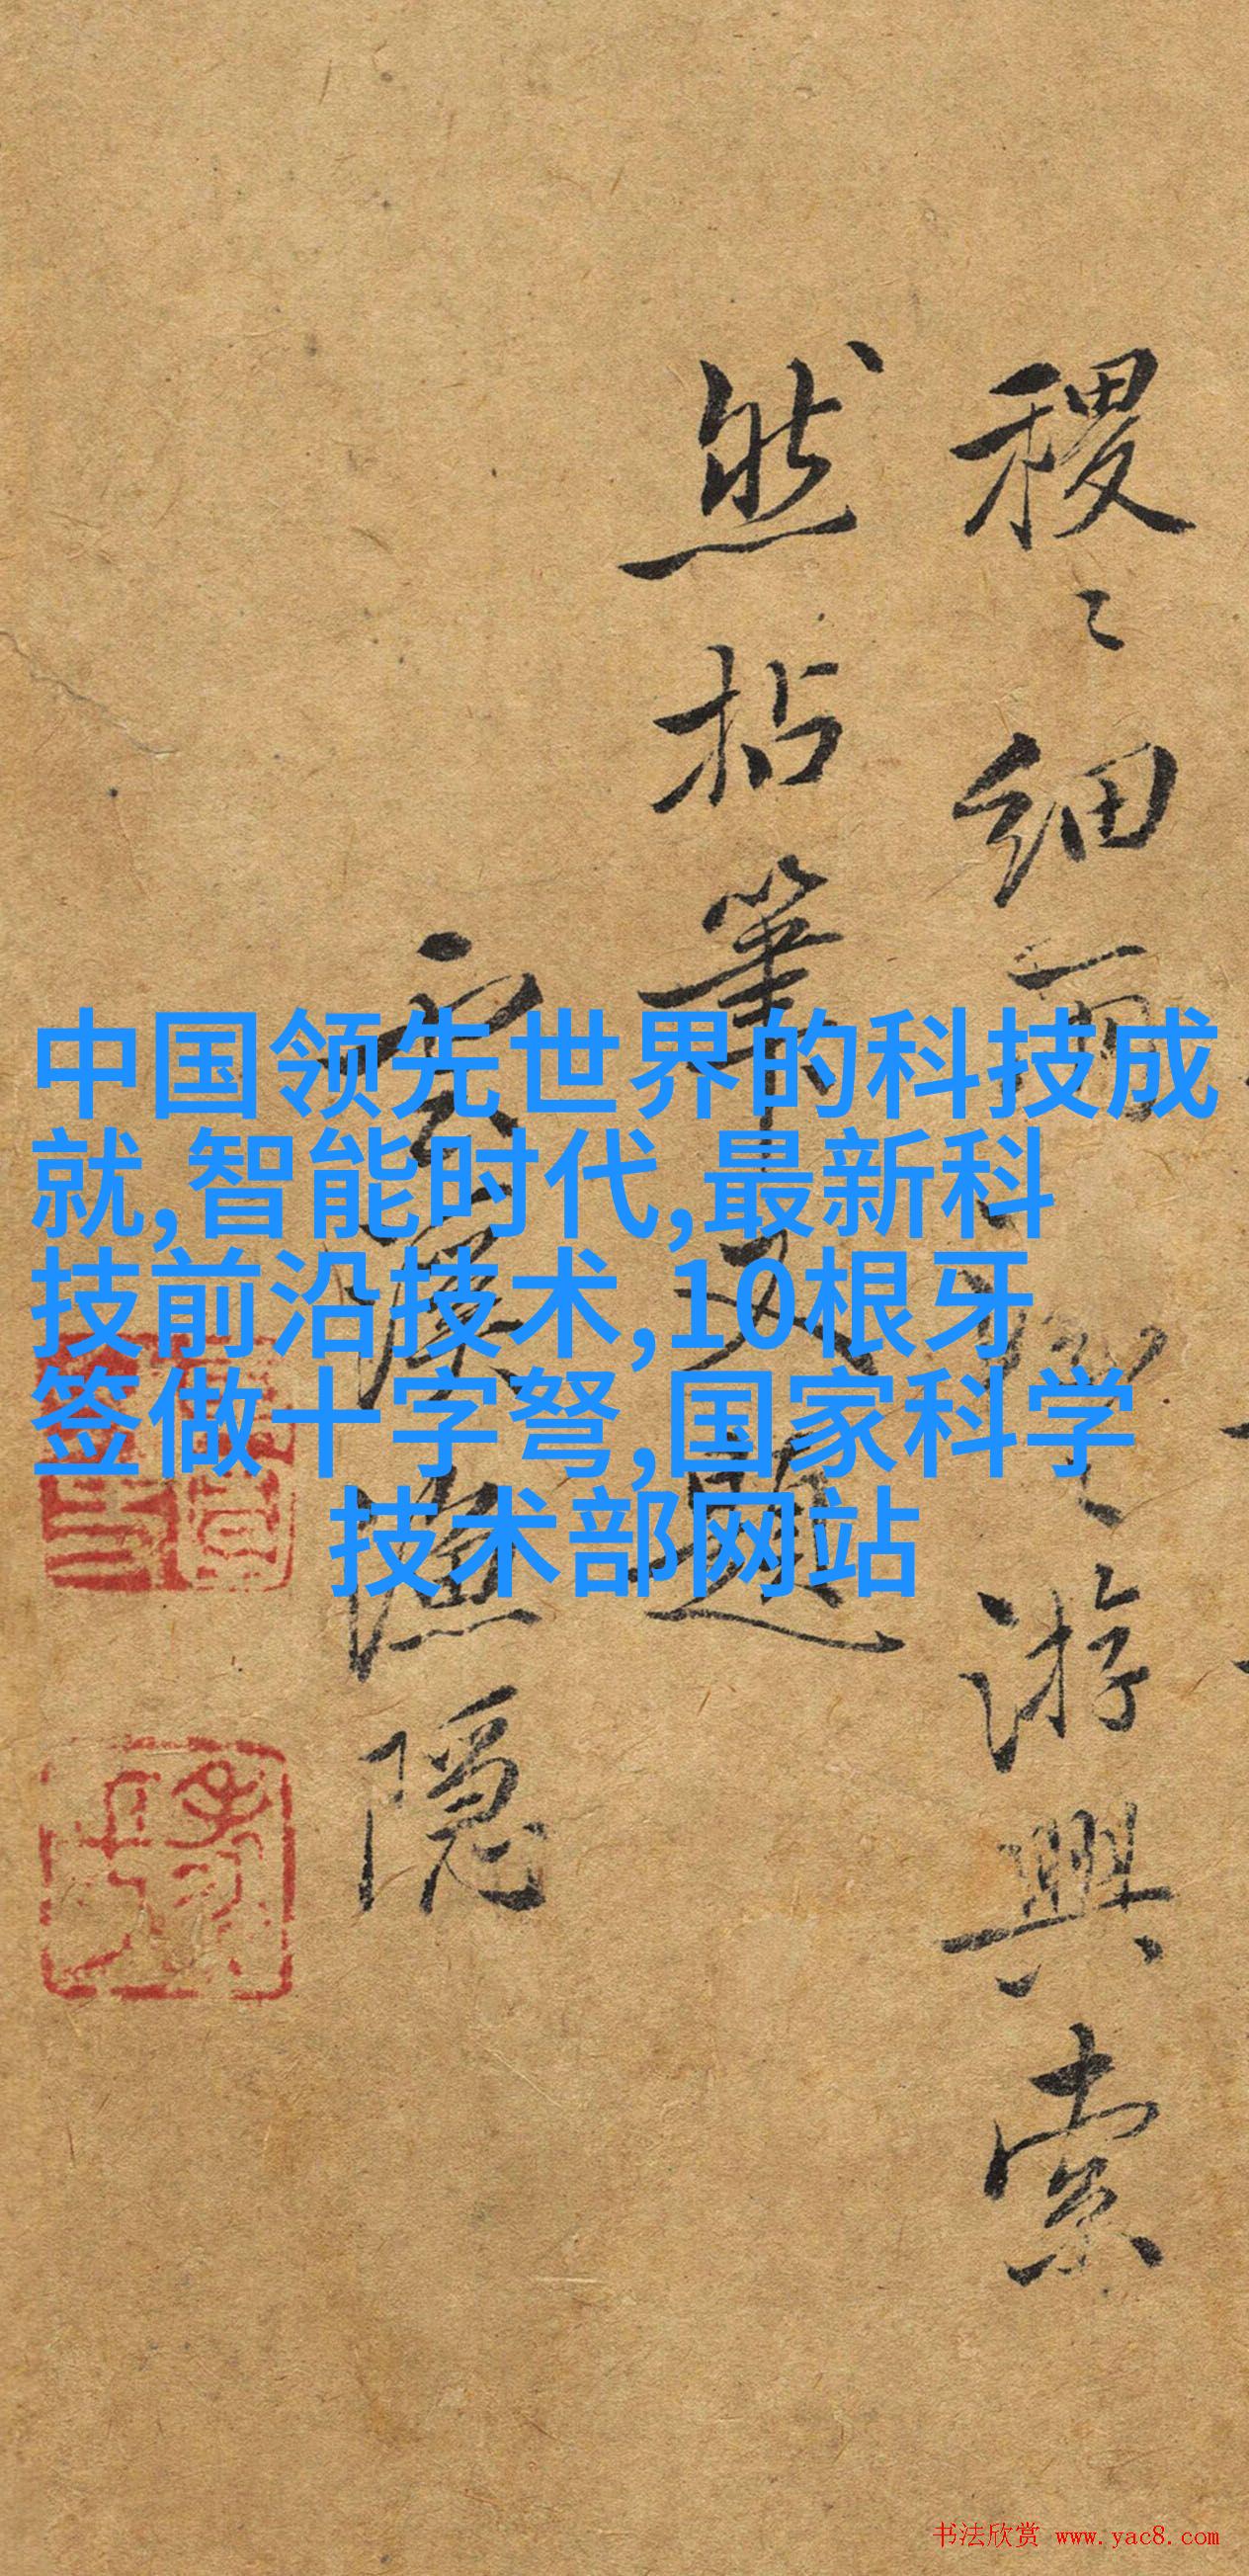 中国领先世界的科技成
就,智能时代,最新科
技前沿技术,10根牙
签做十字弩,国家科学
技术部网站
稷〻细雨
游興索
然拈筆又題
雲溪漁隱
书法欣赏 www.yac8.com